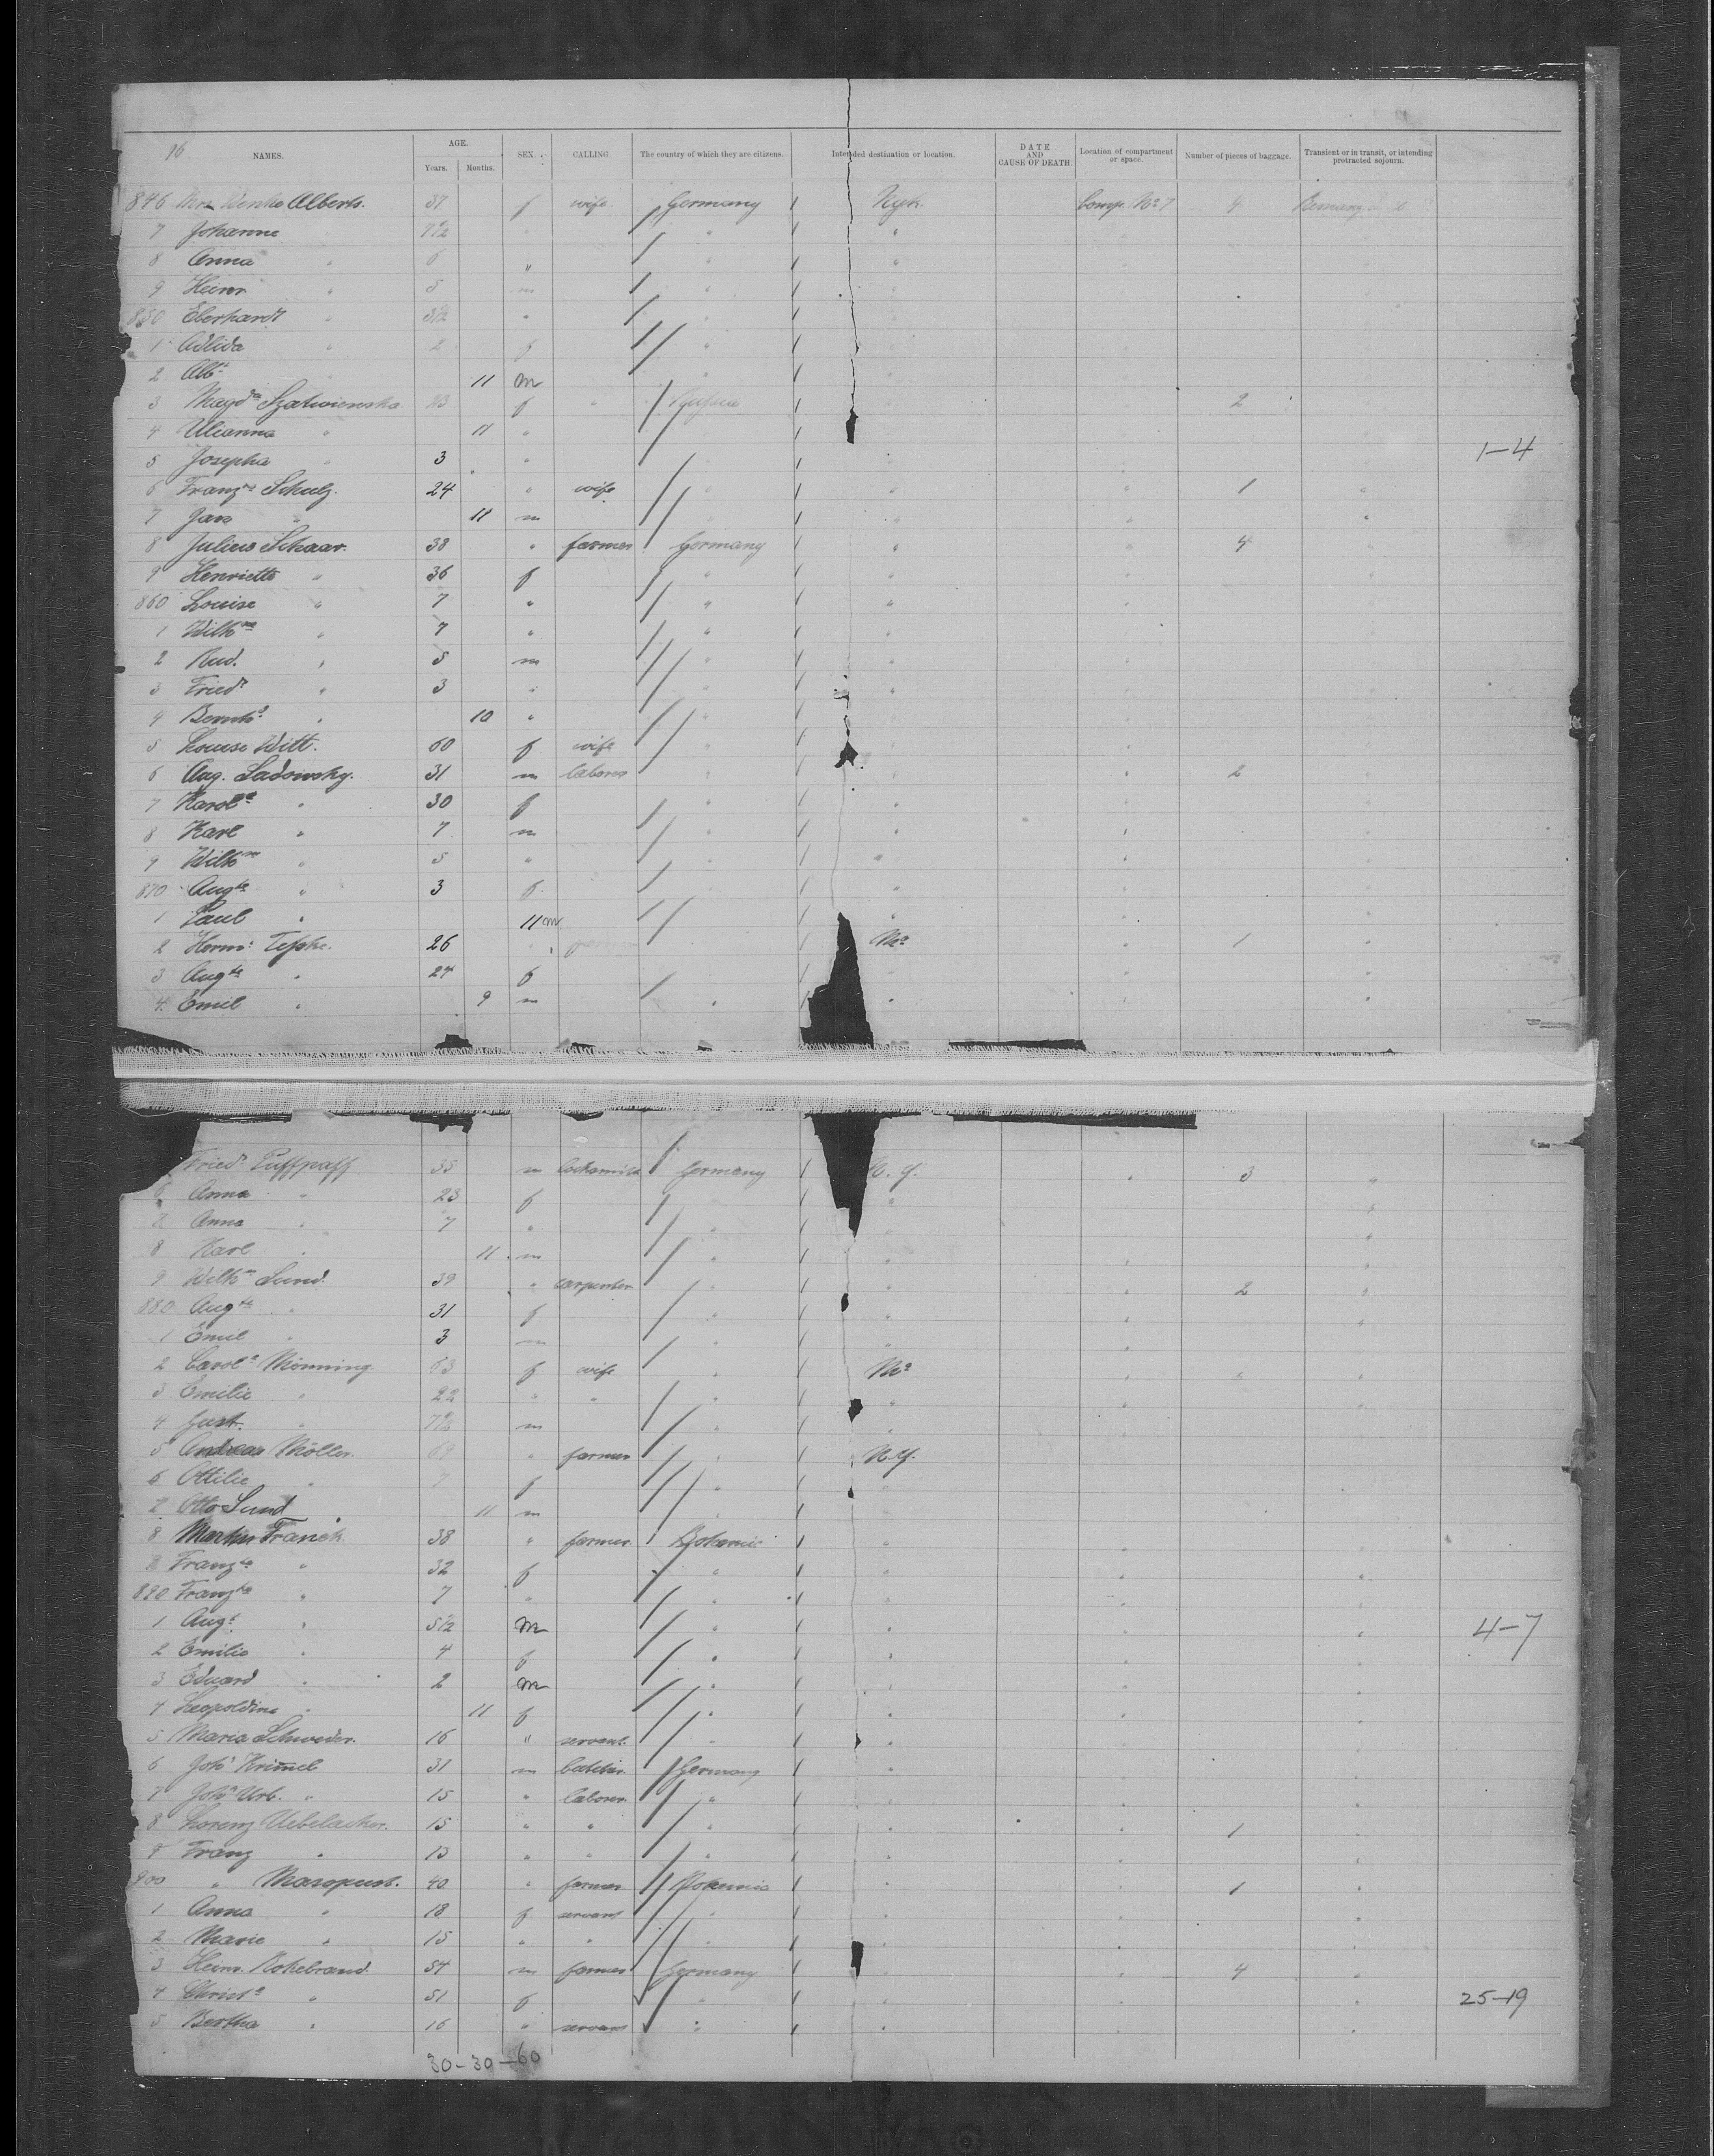 96
NAMES. AGE. Years. Months. SEX. CALLING. The country of which they are citizens. Intended destination or location. DATE AND CAUSE OF DEATH. Location of compartment or space. Number of pieces of baggage. Transient or in transit, or intending protracted sojourn.
846 Mrs Wenke Alberts. 37 f wife. Germany Nyk. Comp. No 7 4
7 Johanne " 9½ " " "
8 Anna " 6 " " "
9 Heinr. " 5 m "
850 Eberhardt " 3½ " "
1 Adlida " 2 f "
2 Alb. 11 m "
3 Magda Szatwienska 23 f " Russia 2
4 Ulianna " 11 "
5 Josepha " 3 "
6 Franz Schulz. 24 " wife " 1 "
7 Jan " 11 m " "
8 Julius Schaar. 38 " farmer Germany " 4
9 Henriette " 36 f " "
860 Louise " 7 " " "
1 Wilhme " 7 " "
2 Rud. " 5 m "
3 Friedr " 3 " "
4 Bernhd " 10 " "
5 Louise Witt. 60 f wife "
6 Aug. Sadowsky. 31 m laborer " 2
7 Karola " 30 f " "
8 Karl " 7 m " "
9 Wilhm " 5 " " "
870 Augte " 3 f. "
1 Paul " 11 m "
2 Herm. Teske. 26 " Mo 1 "
3 Augte " 24 f
4 Emil " 9 m " " "
1-4
Friedr Puffpaff 35 m locksmith Germany N. Y. " 3 "
6 Anna " 23 f "
Anna " 7 " " "
8 Karl " 11 m " "
9 Wilhm Sund. 39 " carpenter " " 2 "
880 Augte " 31 f " "
1 Emil " 3 m "
2 Carola Mönning. 63 f wife " Mo " " "
3 Emilie " 22 " " "
4 Gust. " 7½ m "
5 Andreas Möller. 69 " farmer " N.Y.
6 Ottilie " 7 f "
7 Otto Sund 11 m "
8 Martin Franek 38 " farmer. Bohemia "
9 Franzka " 32 f " "
890 Franzka " 7 " "
1 Aug. " 5½ m " "
2 Emilie " 4 f " "
3 Eduard " 2 m " "
4 Leopoldine " 11 f " "
5 Maria Schneider. 16 " servant. "
6 Joh. Krimel 31 m Germany "
7 Joh. Urb. " 15 " laborer. "
8 Lorenz Uebelacker. 15 " " " 1
9 Franz " 13 " " "
900 " Maropust. 40 " farmer Bohemia " 1
1 Anna " 18 f servant " "
2 Marie " 15 " " " "
3 Heinr. Hohebrand. 54 m farmer Germany " 4
4 Christa " 51 f " "
5 Bertha " 16 " servant " "
4-7
25-19
30-30-60